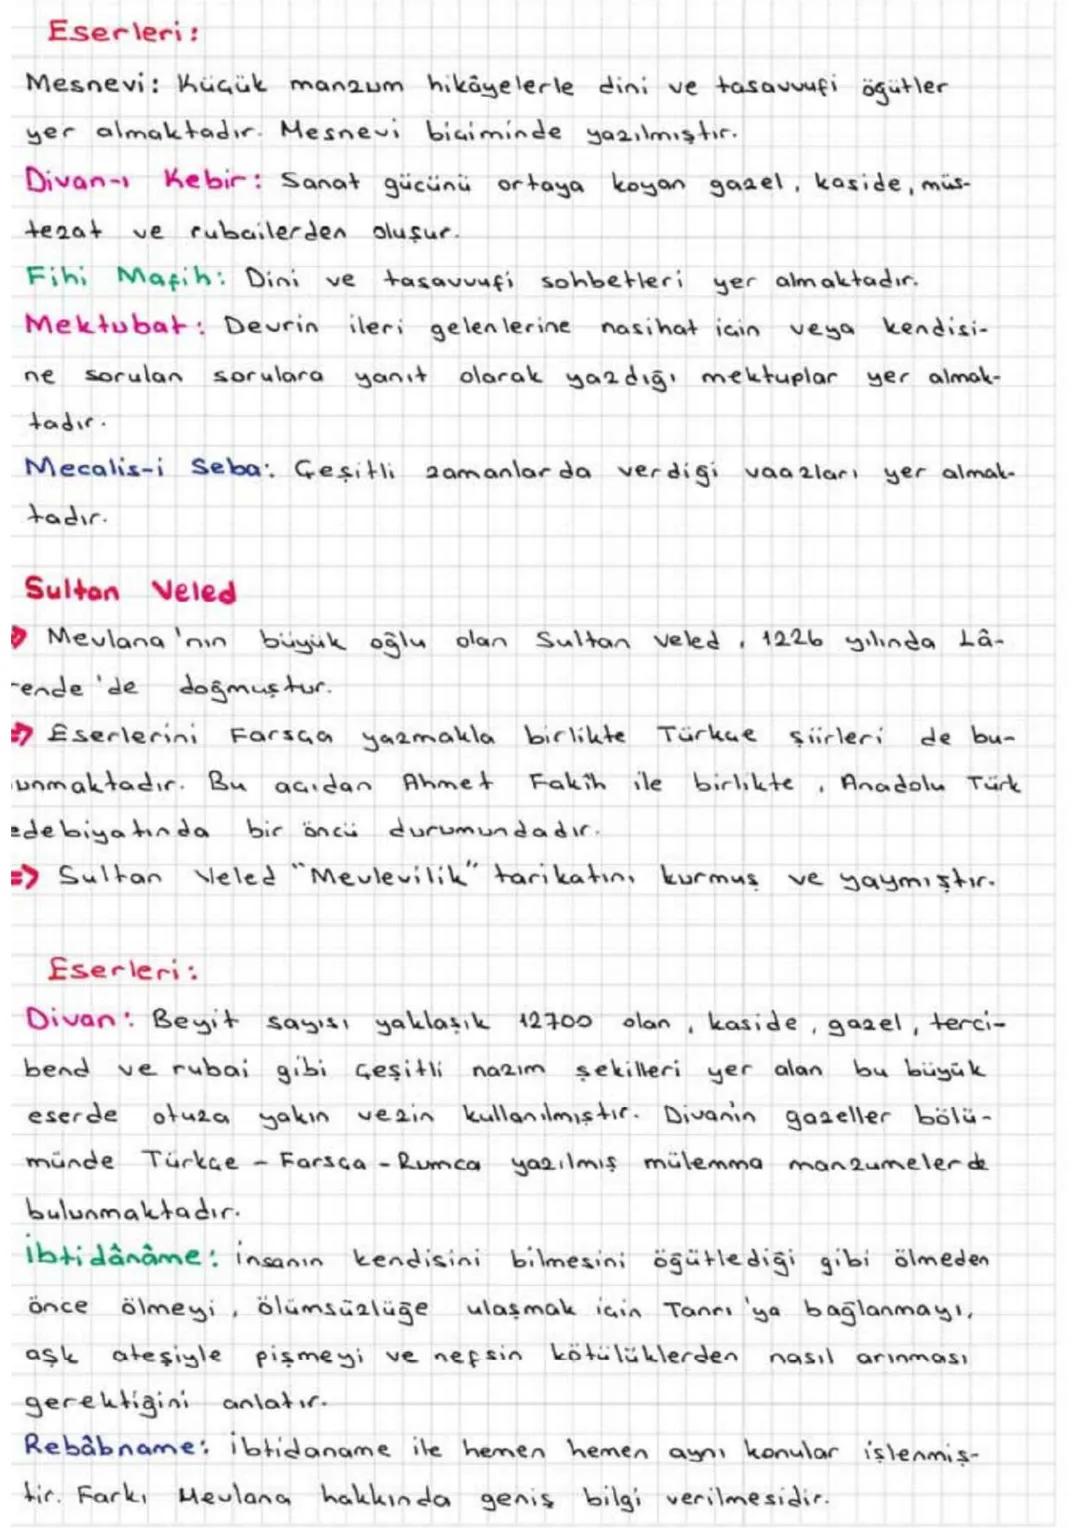 Eserleri:
Mesnevi: Küçük manzum hikâyelerle dini ve tasavvufi öğütler
yer almaktadır. Mesnevi biçiminde yazılmıştır.
Divan-ı Kebir: Sanat gücünü ortaya koyan gazel, kaside, müs-
tezat ve rubailerden oluşur.
Fihi Mafih: Dini ve tasavvufi sohbetleri yer almaktadır.
Mektubat: Devrin ileri gelenlerine nasihat için veya kendisi-
ne sorulan sorulara yanıt olarak yazdığı mektuplar yer almak-
tadır.
Mecalis-i Seba: Çeşitli zamanlarda verdiği vaazları yer almak-
tadır.
Sultan Veled
⇒ Mevlana'nın büyük oğlu olan Sultan Veled, 1226 yılında Lâ-
rende'de doğmuştur.
⇒ Eserlerini Farsça yazmakla birlikte Türkçe şiirleri de bu-
unmaktadır. Bu açıdan Ahmet Fakih ile birlikte, Anadolu Türk
edebiyatında bir öncü durumundadır.
⇒ Sultan Veled "Mevlevilik" tarikatını kurmuş ve yaymıştır.
Eserleri:
Divan: Beyit sayısı yaklaşık 12700 olan, kaside, gazel, terci-
bend ve rubai gibi çeşitli nazım şekilleri yer alan bu büyük
eserde otuza yakın vezin kullanılmıştır. Divanın gazeller bölü-
münde Türkçe - Farsça - Rumca yazılmış mülemma manzumeler de
bulunmaktadır.
İbtidânâme: İnsanın kendisini bilmesini öğütlediği gibi ölmeden
önce ölmeyi, ölümsüzlüğe ulaşmak için Tanrı'ya bağlanmayı,
aşk ateşiyle pişmeyi ve nefsin kötülüklerden nasıl arınması
gerektiğini anlatır.
Rebâbname: İbtidaname ile hemen hemen aynı konular işlenmiş-
tir. Farkı Mevlana hakkında geniş bilgi verilmesidir.